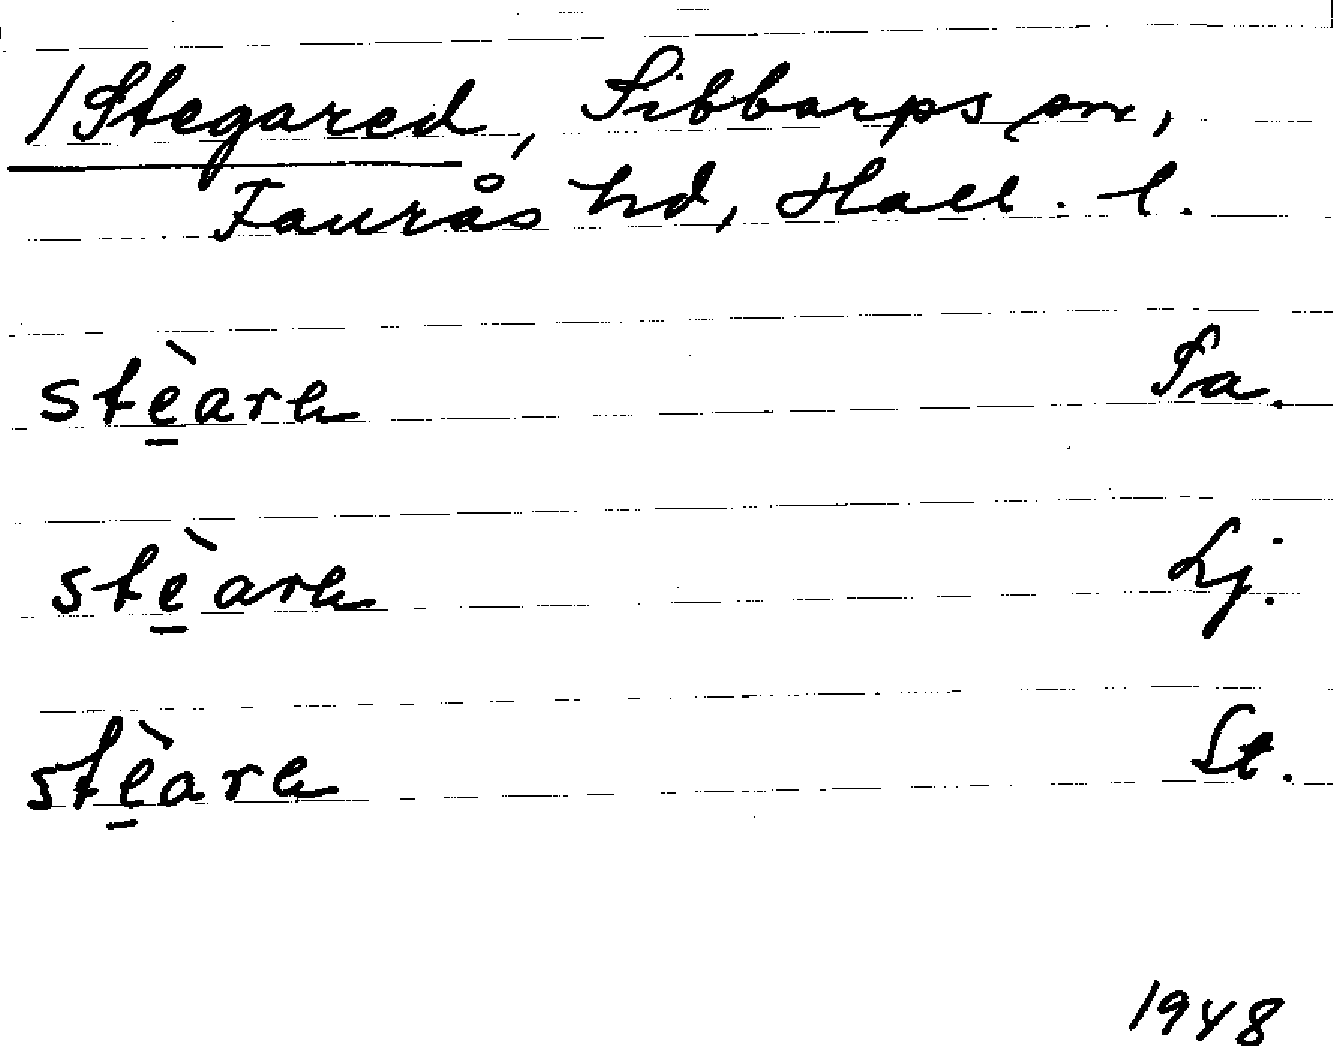 /Stegared, Sibbarps sn,
Faurås hd, Hall. l.
stè̲are Sa.
stè̲are Lj.
stè̲are St.
1948